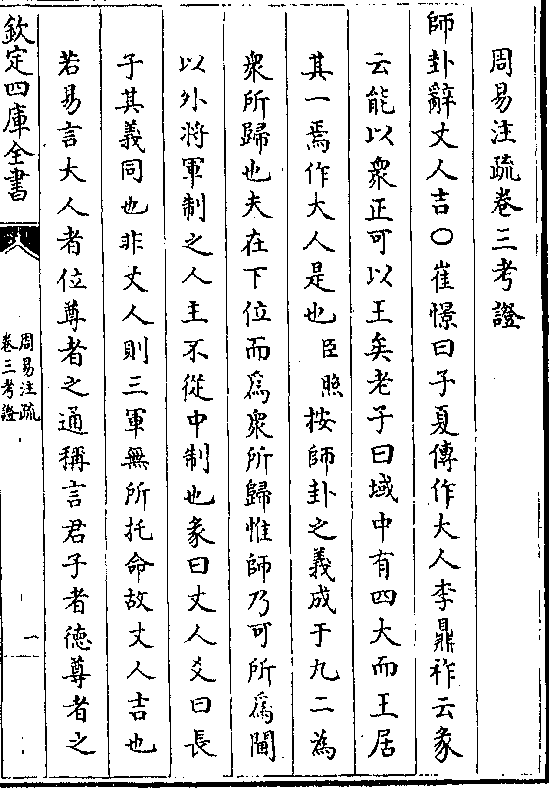 周易注疏卷三考證
師卦辭丈人吉○崔憬曰子夏傳作大人李鼎祚云彖
云能以衆正可以王矣老子曰域中有四大而王居
其一焉作大人是也臣照按師卦之義成于九二為
衆所歸也夫在下位而為衆所歸惟師乃可所為閫
以外將軍制之人主不從中制也彖曰丈人爻曰長
子其義同也非丈人則三軍無所托命故丈人吉也
若易言大人者位尊者之通稱言君子者德尊者之
欽定四庫全書
周易注疏
卷三考證
一